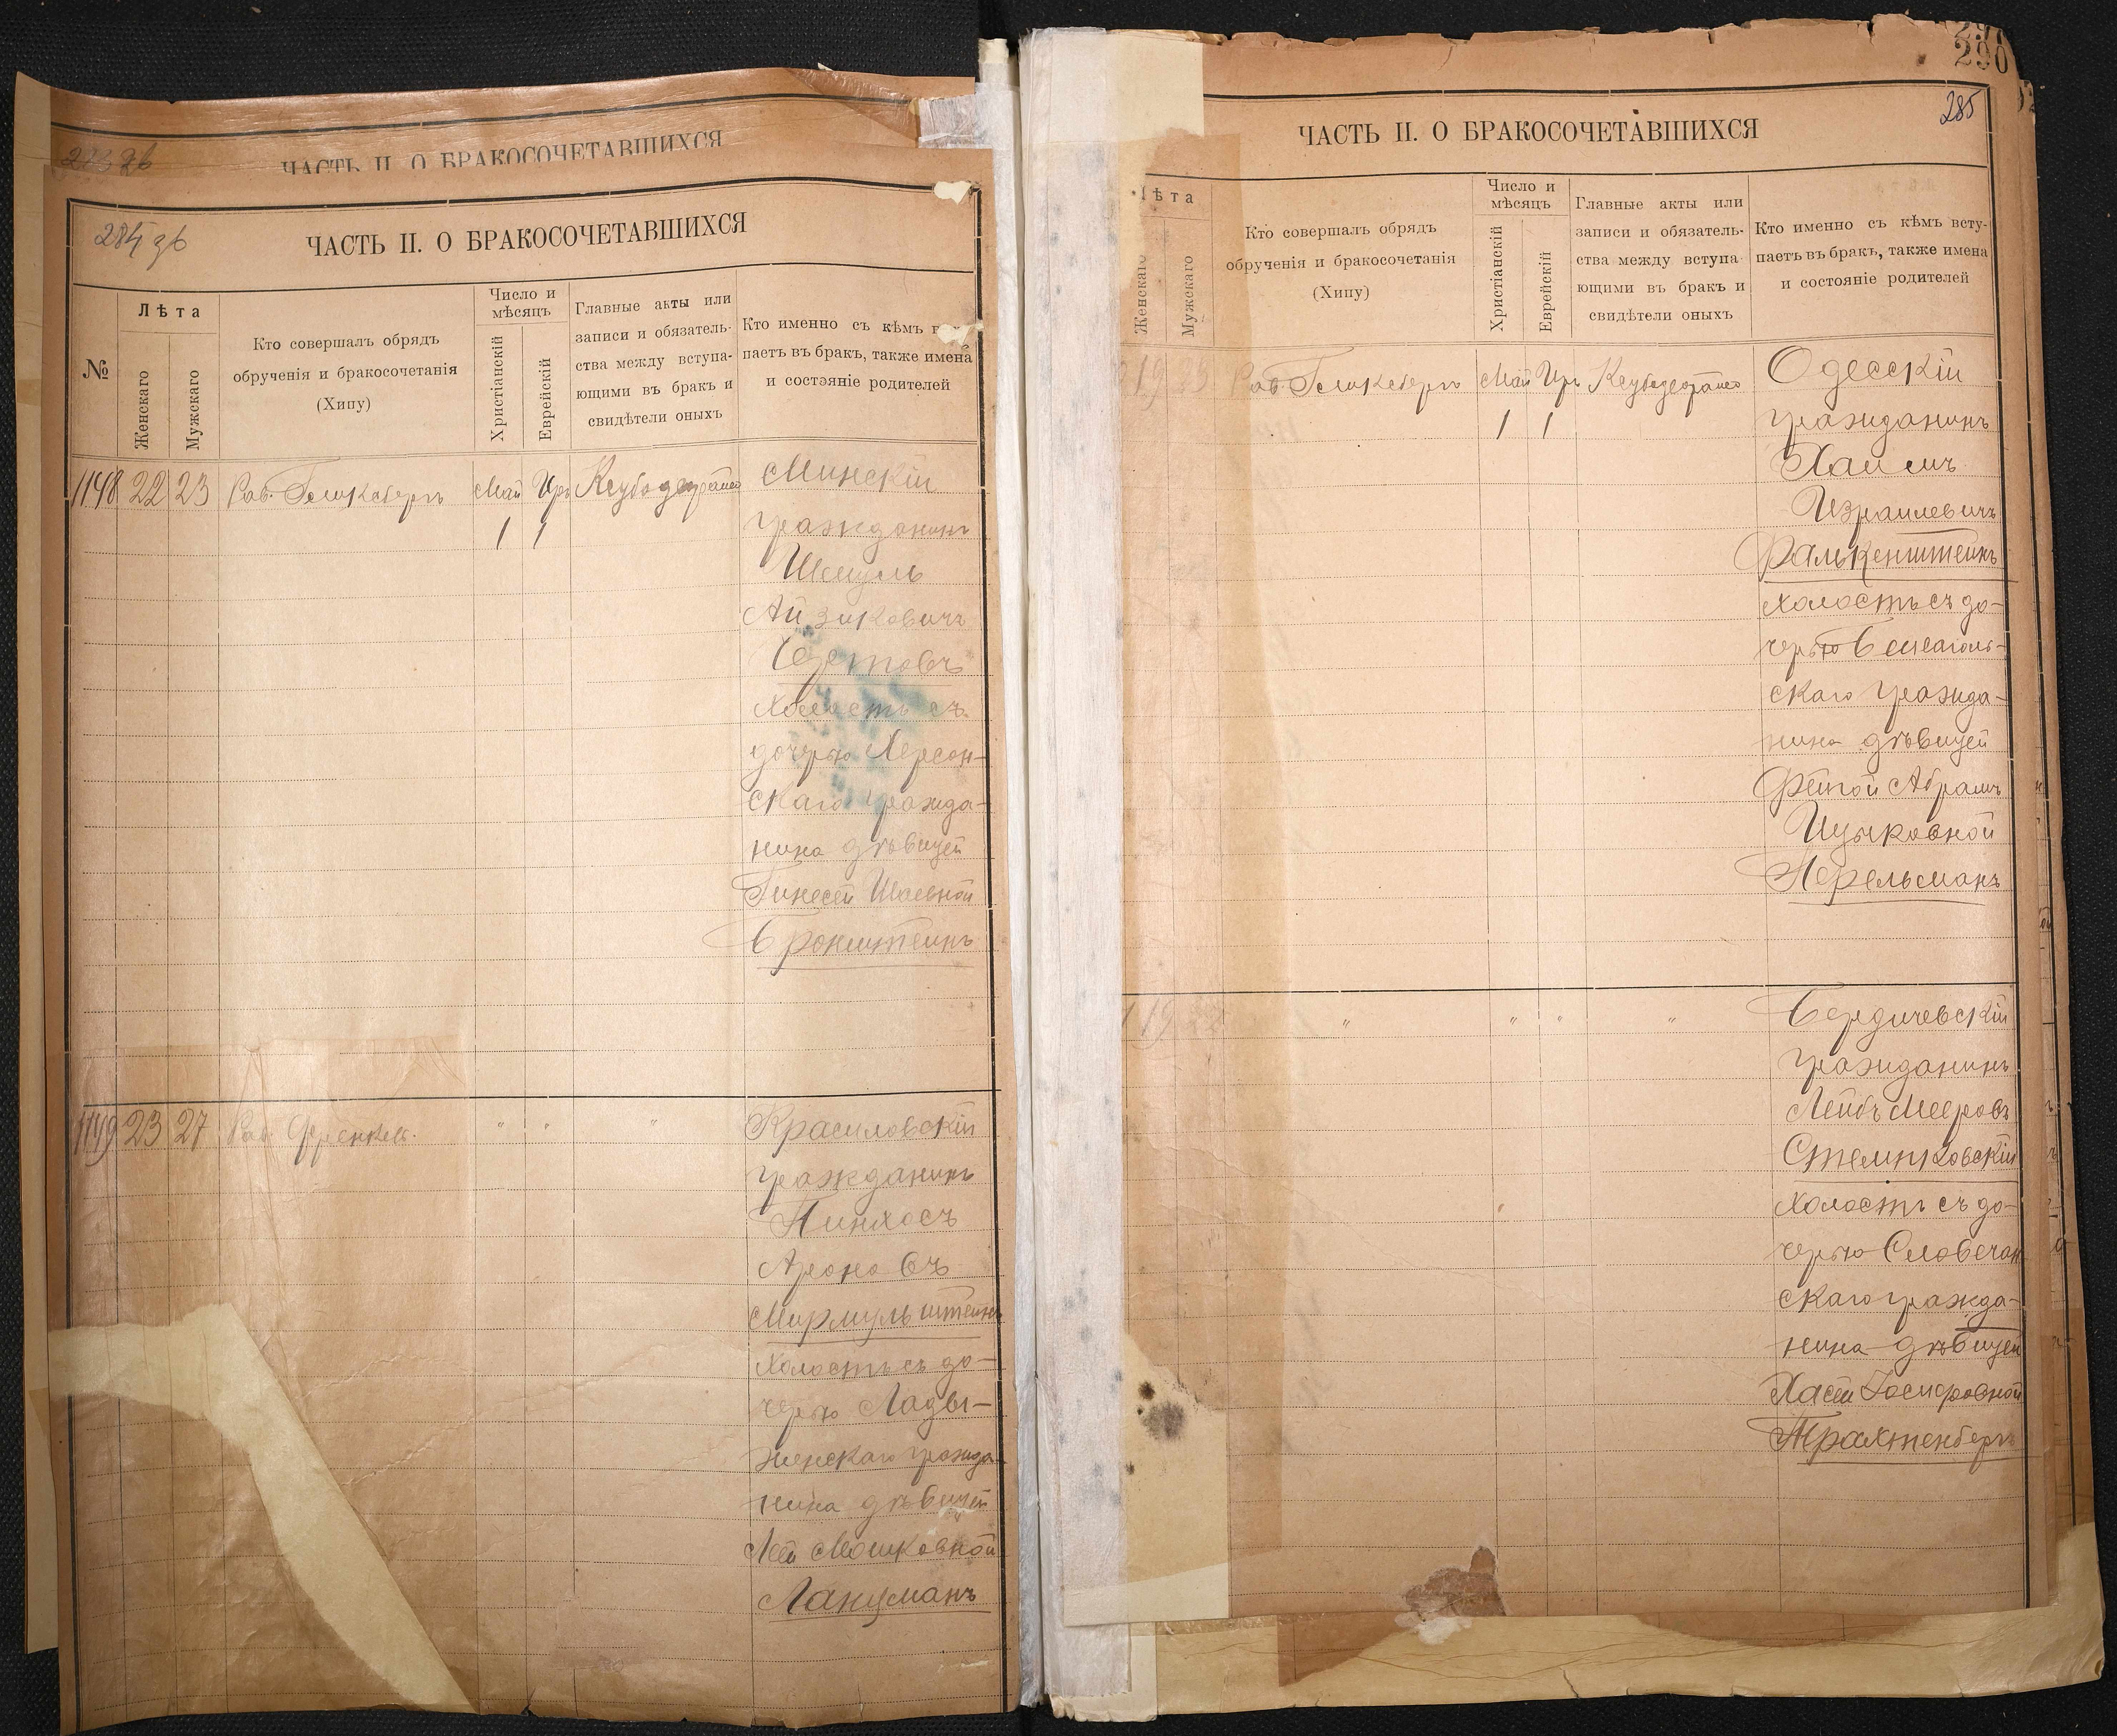 284 об
ЧАСТЬ II. О БРАКОСОЧЕТАВШИХСЯ
ЧАСТЬ II. О БРАКОСОЧЕТАВШИХСЯ
№
Лѣта
Женскаго
Мужскаго
Кто совершалъ обрядъ
обрученія и бракосочетанія
(Хипу)
Число и
мѣсяцъ
Христіанскій
Еврейскій
Главные акты или
записи и обязатель-
ства между вступа-
ющими въ бракъ и
свидѣтели оныхъ
Кто именно съ кѣмъ
паетъ въ бракъ, также имена
и состояніе родителей
1148 22 23 Рав. Май Иръ Минскій
1 1 гражданинъ
Шмуль
Айзиковичъ
холостъ съ
дочерью Херсон-
скаго гражда-
нина дѣвицей
Гинесей Шаевной
Бронштейнъ
1149 23 27 Рав. Френкель. " " " Красиловскій
гражданинъ
Пинхосъ
Ароновъ
Мирмульштейнъ
холостъ съ до-
черью Лады-
женскаго гражда-
нина дѣвицей
Леи Мошковной
Ланцманъ
290
285
ЧАСТЬ II. О БРАКОСОЧЕТАВШИХСЯ
Лѣта
Женскаго
Мужскаго
Кто совершалъ обрядъ
обрученія и бракосочетанія
(Хипу)
Число и
мѣсяцъ
Христіанскій
Еврейскій
Главные акты или
записи и обязатель-
ства между вступа-
ющими въ бракъ и
свидѣтели оныхъ
Кто именно съ кѣмъ всту-
паетъ въ бракъ, также имена
и состояніе родителей
Рав. Май Иръ Одесскій
1 1 гражданинъ
Хаимъ
Израилевичъ
Фалькенштейнъ
холостъ съ до-
черью
скаго гражда-
нина дѣвицей
Фейгой Абрамъ
Ицыковной
Перельсманъ
" " " " Бердичевскій
гражданинъ
Лейбъ Мееровъ
Стемпковскій
холостъ съ до-
черью Словечан
скаго гражда-
нина дѣвицей
Хасей Іосифовной
Трахтенбергъ